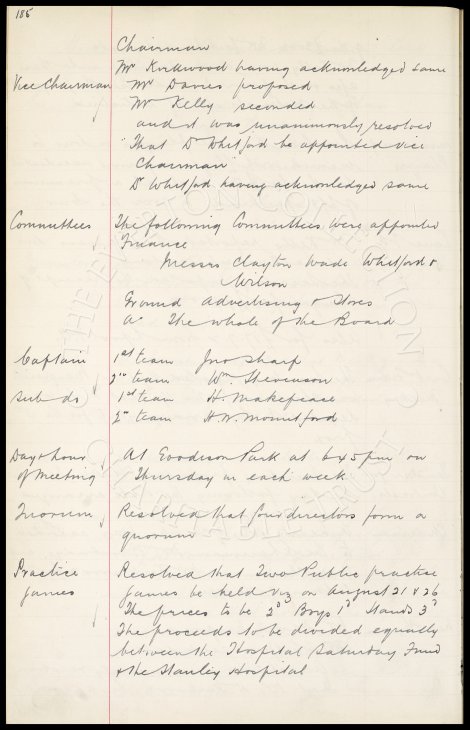 185
Chairman
Mr Kirkwood having acknowledged same
Vice Chairman Mr Davies proposed
Mr Kelly seconded
and it was unanimously resolved
"That Dr Whitford be appointed Vice
Chairman"
Dr Whitford having acknowledged same
Committees The following Committees were appointed
Finance
Messrs Clayton Wade Whitford &
Wilson
Ground Advertising & Stores
The whole of the Board
Captain 1st team Jno Sharp
2nd team Wm Stevenson
Sub do 1st team H. Makepeace
2nd team H.W. Mountford
Day & hour At Goodison Park at 6.45 pm on
of Meeting Thursday in each week
Quorum Resolved that four directors form a
quorum
Practice Resolved that Two Public practice
Games games be held viz on August 21 & 26
The prices to be 2d Boys 1d Stands 3d
The proceeds to be divided equally
between the Hospital Saturday Fund
& the Stanley Hospital
THE EVERTON COLLECTION
CHARITABLE TRUST